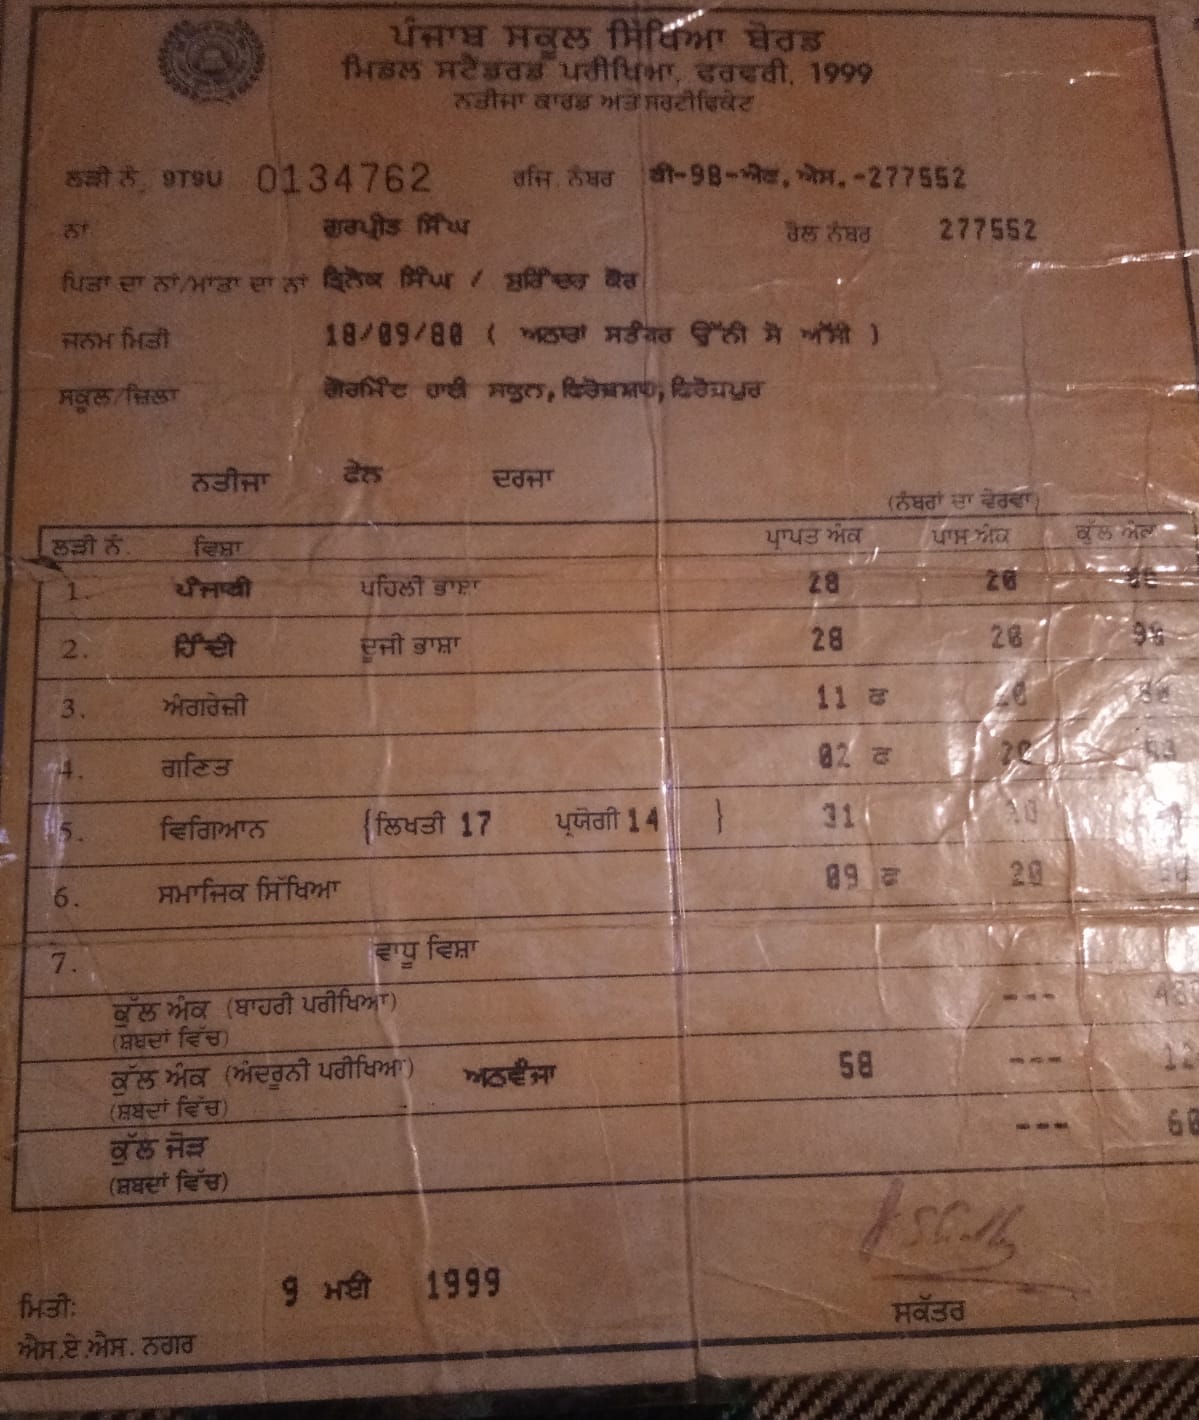 ਪੰਜਾਬ ਸਕੂਲ ਸਿੱਖਿਆ ਬੋਰਡ
ਮਿਡਲ ਸਟੈਂਡਰਡ ਪਰੀਖਿਆ, ਫਰਵਰੀ, 1999
ਨਤੀਜਾ ਕਾਰਡ ਅਤੇ ਸਰਟੀਫਿਕੇਟ
ਲੜੀ ਨੰ. 9T9U 0134762 ਰਜਿ. ਨੰਬਰ ਬੀ-98-ਐਫ.ਐਸ.-277552
ਨਾਂ ਗੁਰਪ੍ਰੀਤ ਸਿੰਘ ਰੋਲ ਨੰਬਰ 277552
ਪਿਤਾ ਦਾ ਨਾਂ/ਮਾਤਾ ਦਾ ਨਾਂ ਤ੍ਰਿਲੋਕ ਸਿੰਘ / ਸੁਰਿੰਦਰ ਕੌਰ
ਜਨਮ ਮਿਤੀ 18/09/80 ( ਅਠਾਰਾਂ ਸਤੰਬਰ ਉੱਨੀ ਸੋ ਅੱਸੀ )
ਸਕੂਲ/ਜ਼ਿਲਾ ਗੋਰਮਿੰਟ ਹਾਈ ਸਕੂਲ, ਫਿਰੋਜ਼ਸ਼ਾਹ, ਫਿਰੋਜ਼ਪੁਰ
ਨਤੀਜਾ ਫੇਲ ਦਰਜਾ
(ਨੰਬਰਾਂ ਦਾ ਵੇਰਵਾ)
ਲੜੀ ਨੰ. ਵਿਸ਼ਾ ਪ੍ਰਾਪਤ ਅੰਕ ਪਾਸ ਅੰਕ ਕੁੱਲ ਅੰਕ
1. ਪੰਜਾਬੀ ਪਹਿਲੀ ਭਾਸ਼ਾ 28 20
2. ਹਿੰਦੀ ਦੂਜੀ ਭਾਸ਼ਾ 28 20 90
3. ਅੰਗਰੇਜ਼ੀ 11 ਫ 20
4. ਗਣਿਤ 02 ਫ 20
5. ਵਿਗਿਆਨ {ਲਿਖਤੀ 17 ਪ੍ਰਯੋਗੀ 14 } 31
6. ਸਮਾਜਿਕ ਸਿੱਖਿਆ 09 ਫ 20
7. ਵਾਧੂ ਵਿਸ਼ਾ
ਕੁੱਲ ਅੰਕ (ਬਾਹਰੀ ਪਰੀਖਿਆ) ---
(ਸ਼ਬਦਾਂ ਵਿੱਚ)
ਕੁੱਲ ਅੰਕ (ਅੰਦਰੂਨੀ ਪਰੀਖਿਆ) ਅਠਵੰਜਾ 58 ---
(ਸ਼ਬਦਾਂ ਵਿੱਚ)
ਕੁੱਲ ਜੋੜ ---
(ਸ਼ਬਦਾਂ ਵਿੱਚ)
9 ਮਈ 1999
ਮਿਤੀ:
ਸਕੱਤਰ
ਐਸ.ਏ.ਐਸ. ਨਗਰ